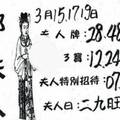 3月15.17.19日
夫人牌:28.48
3窩:12.24
夫人特别招待:07
夫人曰:二九旺
夫